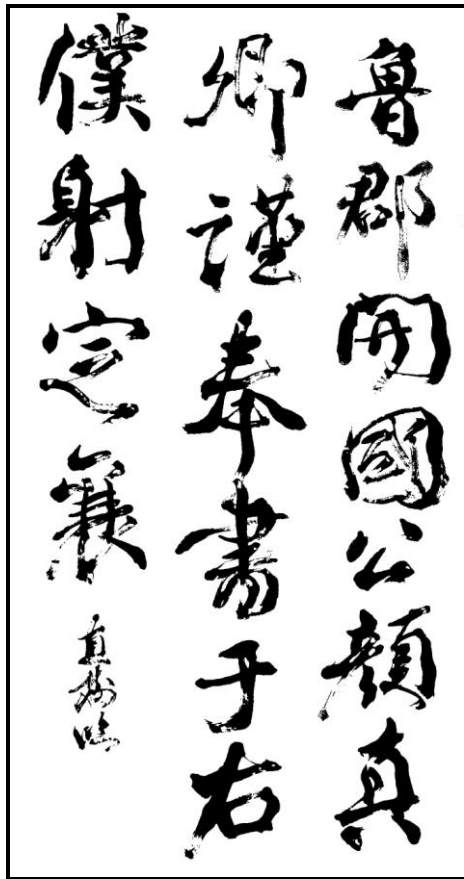 魯郡開國公顏真
卿謹奉書于右
僕射定襄
直樹臨